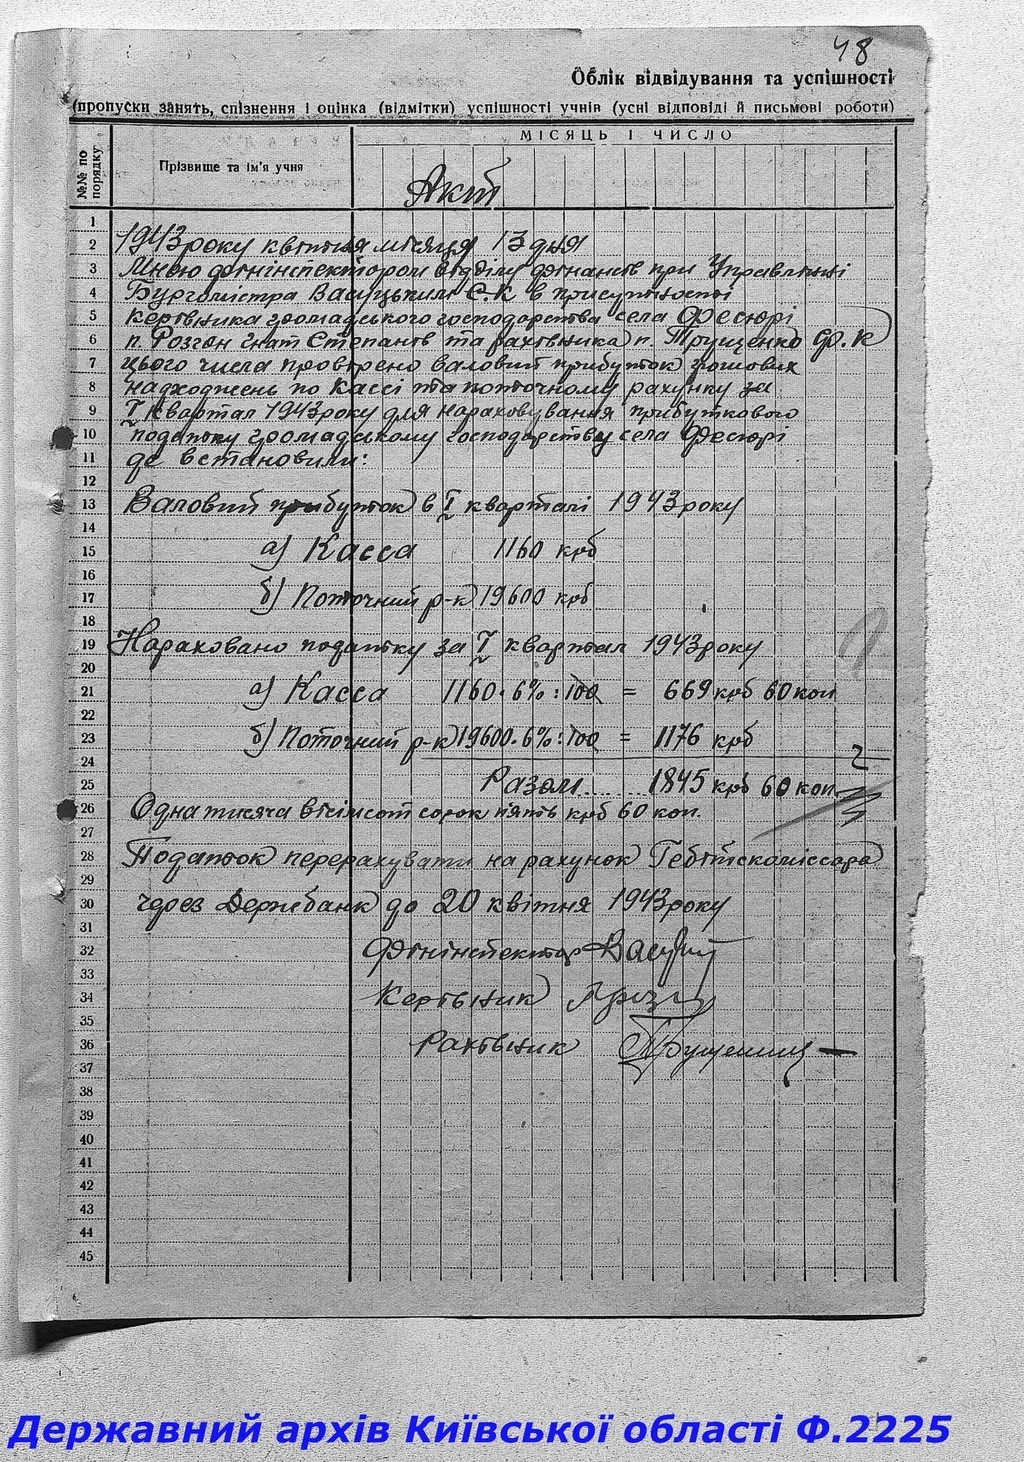 48
Облік відвідування та успішності
(пропуски занять, спізнення і оцінка (відмітки) успішності учнів (усні відповіді й письмові роботи)
№№ по порядку
Прізвище та ім'я учня
МІСЯЦЬ І ЧИСЛО
Акт
1
2 1943 року квітня місяця 13 дня
3 Мною фінінспектором відділу фінансів при Управлінні
4 Бургомістра Васуцьким Є.К в присутності
5 керівника громадського господарства села Фесюрі
6 п. Розгон Гнат Степанів та рахівника п. Трущенко Ф.К
7 цього числа провірено валовий прибуток грошових
8 надходжень по Кассі та поточному рахунку за
9 I квартал 1943 року для нараховування прибуткового
10 податку громадському господарству села Фесюрі
11 де встановили:
12
13 Валовий прибуток в I кварталі 1943 року
14
15 а) Касса 1160 крб
16
17 б) Поточний р-к 19600 крб
18
19 Нараховано податку за I квартал 1943 року
20
21 а) Касса 1160·6%:100 = 669 крб 60 коп
22
23 б) Поточний р-к 19600·6%:100 = 1176 крб
24
25 Разом...... 1845 крб 60 коп
26 Одна тисяча вісімсот сорок п'ять крб 60 коп.
27
28 Податок перерахувати на рахунок Гебітскоміссара
29
30 через Держбанк до 20 квітня 1943 року
31
32 Фінінспектор
33
34 Керівник
35
36 Рахівник
37
38
39
40
41
42
43
44
45
Державний архів Київської області Ф.2225